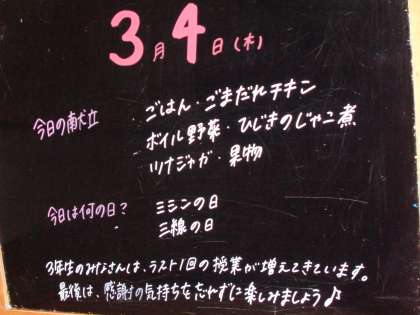 3月4日(木)
今日の献立
ごはん・ごまだれチキン
ボイル野菜・ひじきのじゃこ煮
ツナジャガ・果物
今日は何の日?
ミシンの日
三線の日
3年生のみなさんは、ラスト1回の授業が増えてきています。
最後は、感謝の気持ちを忘れずに楽しみましょう♪